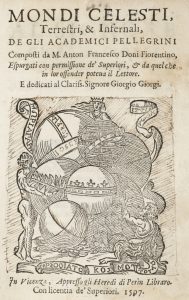 MONDI CELESTI,
Terrestri, & Infernali,
DE GLI ACADEMICI PELLEGRINI
Composti da M. Anton Francesco Doni Fiorentino,
Espurgati con permissione de' Superiori, & da quel che
in lor offender poteua il Lettore.
E dedicati al Clariss. Signore Giorgio Giorgi.
In Vicenza, Appresso gli Heredi di Perin Libraro.
Con licentia de' Superiori. 1597.